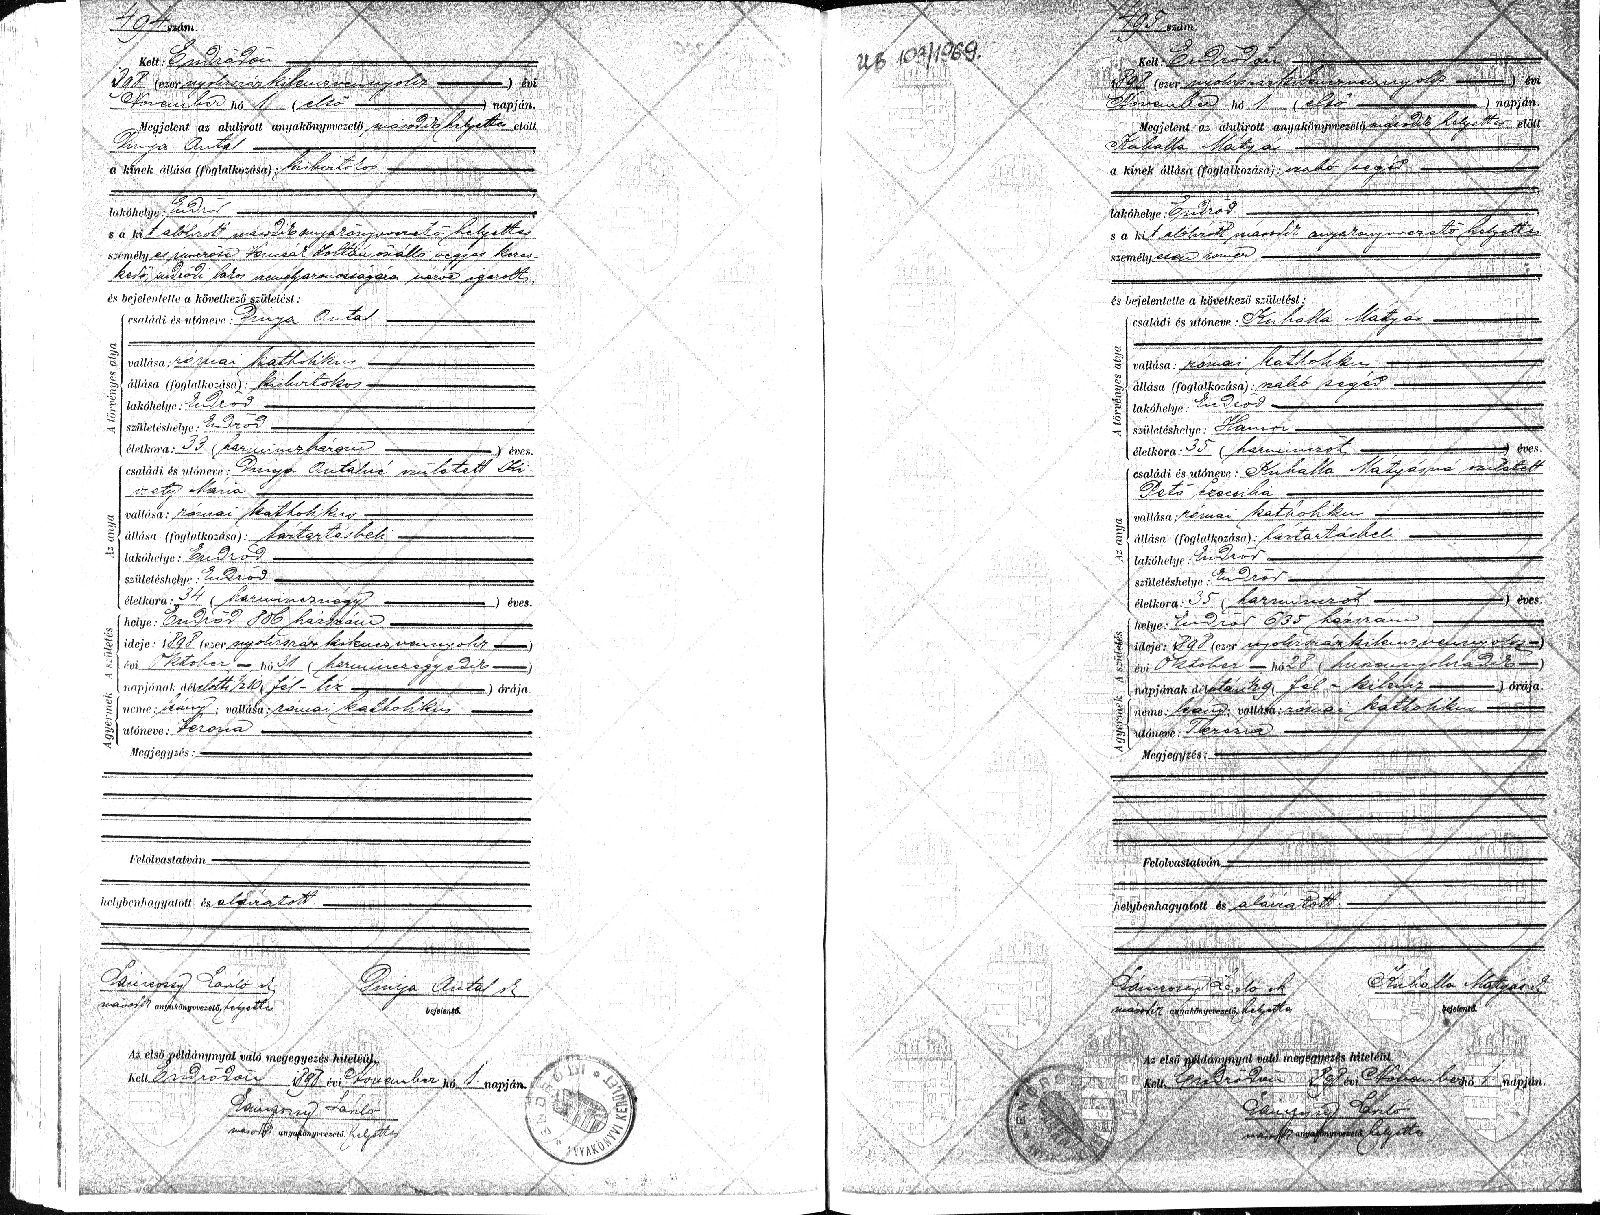 494 szám.
Kelt: Endrődön
1898 (ezer nyolczszázkilenczvennyolcz) évi
November hó 1 (első) napján.
Megjelent az alulirott anyakönyvezető második helyettes előtt
Dinya Antal
a kinek állása (foglalkozása): kisbirtokos
lakóhelye: Endrőd
s a kit alólirott második anyakönyvvezető helyettes
személy
személyazonosságára nézve igazolt,
és bejelentette a következő születést:
A törvényes atyja
családi és utóneve: Dinya Antal
vallása: római katholikus
állása (foglalkozása): kisbirtokos
lakóhelye: Endrőd
születéshelye: Endrőd
életkora: 33 (harminczhárom) éves.
Az anya
családi és utóneve: Dinya Antalné született
Mária
vallása: római katholikus
állása (foglalkozása): háztartásbeli
lakóhelye: Endrőd
születéshelye: Endrőd
életkora: 34 (harmincznégy) éves.
A gyermek A születés
helye: Endrőd 806 házszám
ideje: 1898 (ezer nyolczszázkilenczvennyolcz)
évi Október hó 31 (harminczegyedik)
napjának délelőtti ½10 (fél-tíz) órája.
neme: leány; vallása: római katholikus
utóneve: Terézia
Megjegyzés:
Felolvastatván
helybenhagyatott és aláiratott
László sk
második anyakönyvvezető helyettes
Dinya Antal sk
bejelentő.
Az első példánynyal való megegyezés hiteléül.
Kelt Endrődön 1898 évi November hó 1 napján.
László
második anyakönyvvezető helyettes
UB 109/1969.
495 szám.
Kelt: Endrődön
1898 (ezer nyolczszázkilenczvennyolcz) évi
November hó 1 (első) napján.
Megjelent az alulirott anyakönyvvezető második helyettes előtt
Kuhalla Mátyás
a kinek állása (foglalkozása): szabó segéd
lakóhelye: Endrőd
s a kit alólirott második anyakönyvvezető helyettes
személyesen ismer
és bejelentette a következő születést:
A törvényes atyja
családi és utóneve: Kuhalla Mátyás
vallása: római katholikus
állása (foglalkozása): szabó segéd
lakóhelye: Endrőd
születéshelye:
életkora: 35 (harminczöt) éves.
Az anya
családi és utóneve: Kuhalla Mátyásné született
Pető Czeczilia
vallása: római katholikus
állása (foglalkozása): háztartásbeli
lakóhelye: Endrőd
születéshelye: Endrőd
életkora: 35 (harminczöt) éves.
A gyermek A születés
helye: Endrőd 635 házszám
ideje: 1898 (ezer nyolczszázkilenczvennyolcz)
évi Október hó 28 (huszonnyolczadik)
napjának délutáni ½9 (fél-kilencz) órája.
neme: leány; vallása: római katholikus
utóneve: Terézia
Megjegyzés:
Felolvastatván
helybenhagyatott és aláiratott.
László sk
második anyakönyvvezető helyettes
Kuhalla Mátyás sk
bejelentő.
Az első példánynyal való megegyezés hiteléül
Kelt Endrődön 1898 évi November hó 1 napján.
László
második anyakönyvvezető helyettes